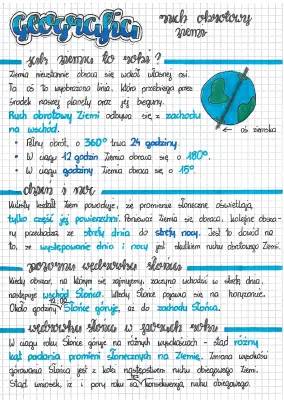 Geografia
ruch obrotowy
ziemi
jak ziemia to robi?
Ziemia nieustannie obraca się wokół własnej osi.
Ta oś to wyobrażona linia, która przebiega przez
środek naszej planety oraz jej bieguny.
Ruch obrotowy Ziemi odbywa się z zachodu
na wschód.
← oś ziemska
• Pełny obrót, o 360° trwa 24 godziny.
• W ciągu 12 godzin Ziemia obraca się o 180°.
• W ciągu godziny Ziemia obraca się o 15°.
dzień i noc
kształt Ziemi powoduje, że promienie słoneczne oświetlają
tylko część jej powierzchni. Ponieważ Ziemia się obraca, kolejne obsza-
ry przechodzą ze strefy dnia do strefy nocy. Jest to dowód na
to, że występowanie dnia i nocy jest skutkiem ruchu obrotowego Ziemi.
pozorna wędrówka słońca
Kiedy obszar, na którym się zajmujemy, zaczyna wchodzić w strefę dnia,
następuje wschód Słońca. Wtedy Słońce pojawia się na horyzoncie.
Około godziny Słońce góruje, aż do zachodu Słońca.
wędrówka słońca w różnych roku
W ciągu roku Słońce góruje na różnych wysokościach - stąd różny
kąt padania promieni słonecznych na Ziemię. Zmiana wysokości
górowania Słońca jest z kolei następstwem ruchu obiegowego Ziemi.
Stąd wniosek, iż i pory roku są konsekwencją ruchu obiegowego.